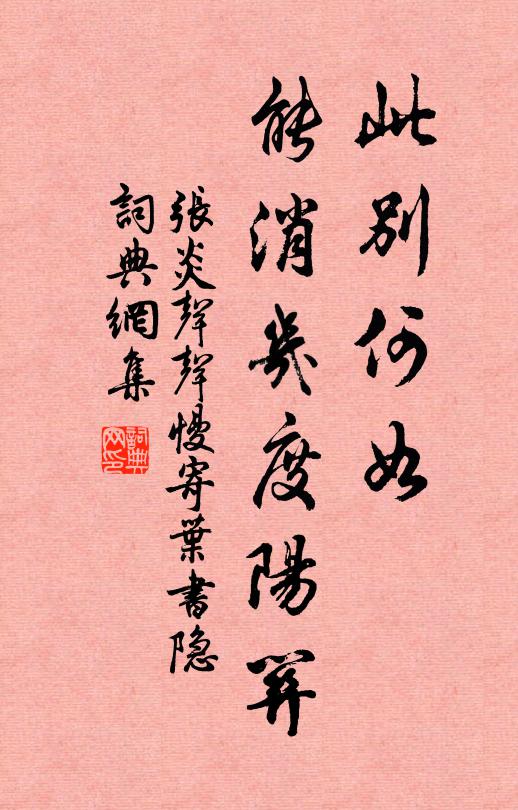 此別何如
能消幾度陽關
張炎聲聲慢寄葉書隱
詞典網集
詞典網印